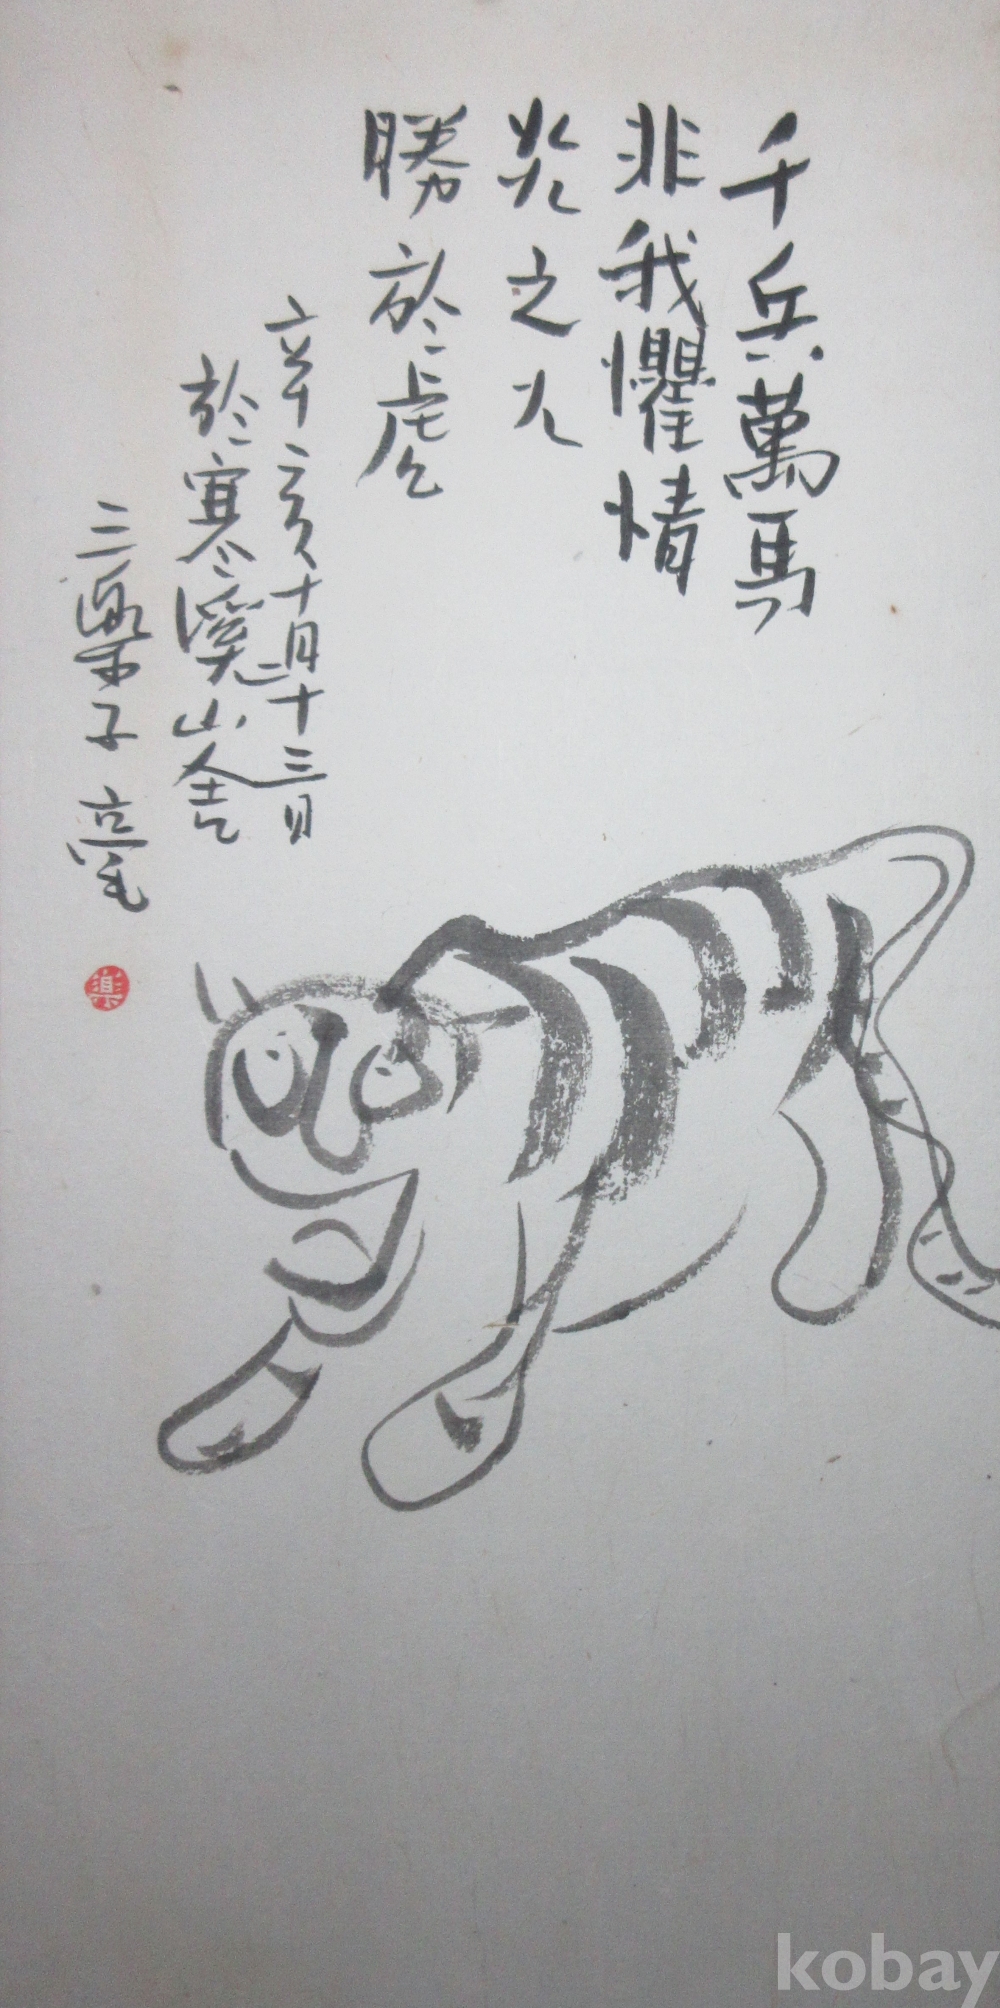 千兵萬馬
非我懼情
炎之火
勝於虎
辛亥十月二十三日
於寒溪山舍
三樂子
樂
kobay